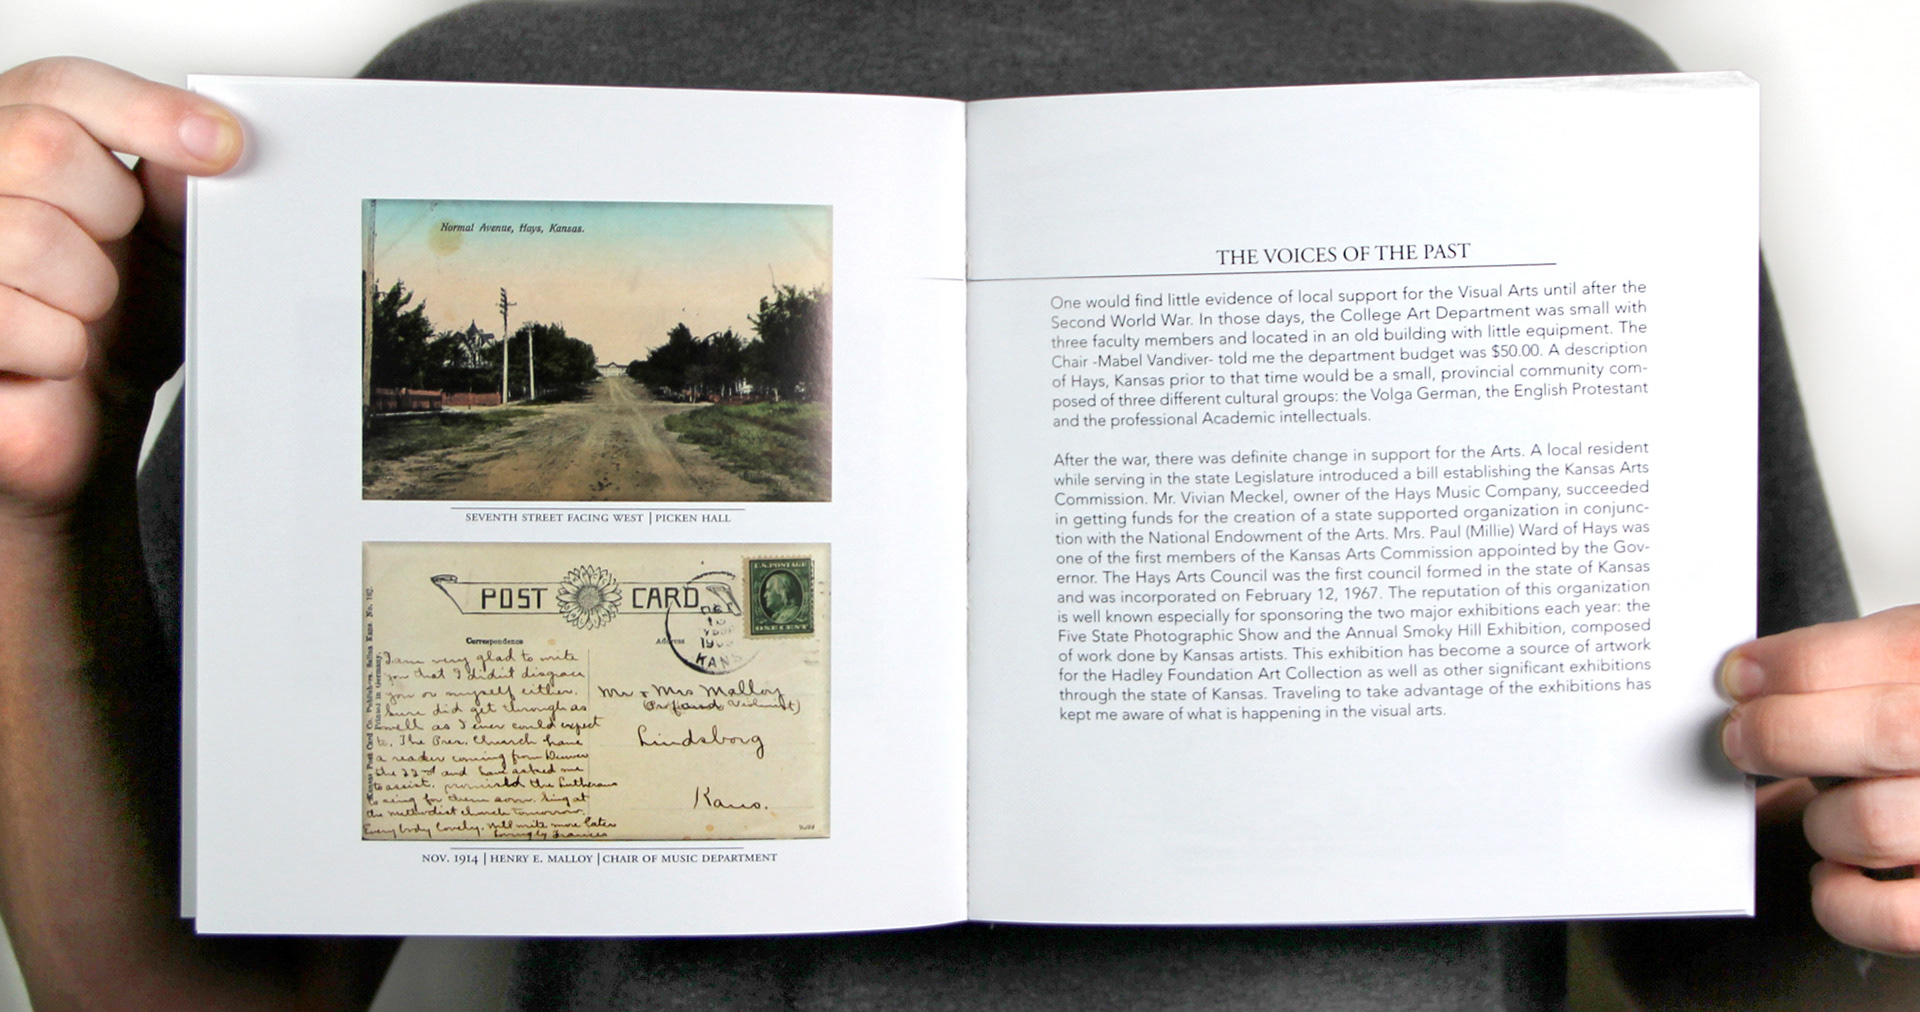 Normal Avenue, Hays, Kansas.
SEVENTH STREET FACING WEST | PICKEN HALL
POST CARD
U.S. POSTAGE
ONE CENT
KANS
Correspondence
Address
Kansas Post Card Co., Publishers, Salina Kans. No. 107.
Printed in Germany.
I am very glad to write
you that I didn't disgrace
you or myself either.
Sure did get through as
well as I ever could expect
to. The Pres. Church have
a reader coming from Denver
the 22nd and have asked me
to assist. promised the Lutherans
to sing for them soon. Sing at
the Methodist church tomorrow.
Everybody lovely. Will write more later
Lovingly Frances
Mr & Mrs Malloy
Lindsborg
Kans.
NOV. 1914 | HENRY E. MALLOY | CHAIR OF MUSIC DEPARTMENT
THE VOICES OF THE PAST
One would find little evidence of local support for the Visual Arts until after the
Second World War. In those days, the College Art Department was small with
three faculty members and located in an old building with little equipment. The
Chair -Mabel Vandiver- told me the department budget was $50.00. A description
of Hays, Kansas prior to that time would be a small, provincial community com-
posed of three different cultural groups: the Volga German, the English Protestant
and the professional Academic intellectuals.
After the war, there was definite change in support for the Arts. A local resident
while serving in the state Legislature introduced a bill establishing the Kansas Arts
Commission. Mr. Vivian Meckel, owner of the Hays Music Company, succeeded
in getting funds for the creation of a state supported organization in conjunc-
tion with the National Endowment of the Arts. Mrs. Paul (Millie) Ward of Hays was
one of the first members of the Kansas Arts Commission appointed by the Gov-
ernor. The Hays Arts Council was the first council formed in the state of Kansas
and was incorporated on February 12, 1967. The reputation of this organization
is well known especially for sponsoring the two major exhibitions each year: the
Five State Photographic Show and the Annual Smoky Hill Exhibition, composed
of work done by Kansas artists. This exhibition has become a source of artwork
for the Hadley Foundation Art Collection as well as other significant exhibitions
through the state of Kansas. Traveling to take advantage of the exhibitions has
kept me aware of what is happening in the visual arts.